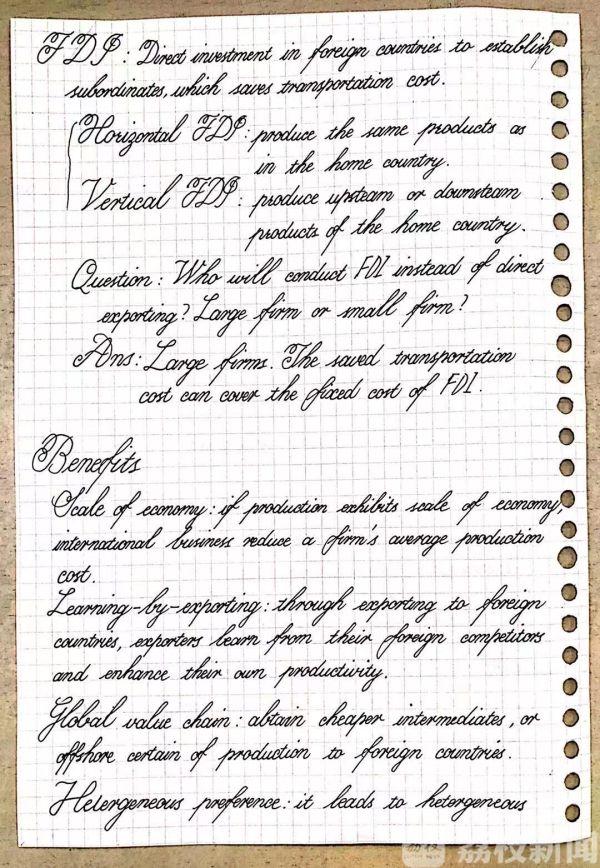 FDI: Direct investment in foreign countries to establish
subordinates, which saves transportation cost.
Horizontal FDI: produce the same products as
in the home country.
Vertical FDI: produce upsteam or downsteam
products of the home country.
Question: Who will conduct FDI instead of direct
exporting? Large firm or small firm?
Ans: Large firms. The saved transportation
cost can cover the fixed cost of FDI.
Benefits
Scale of economy: if production exhibits scale of economy,
international business reduce a firm's average production
cost.
Learning-by-exporting: through exporting to foreign
countries, exporters learn from their foreign competitors
and enhance their own productivity.
Global value chain: abtain cheaper intermediates, or
offshore certain of production to foreign countries.
Hetergeneous preference: it leads to hetergeneous
荔枝新闻